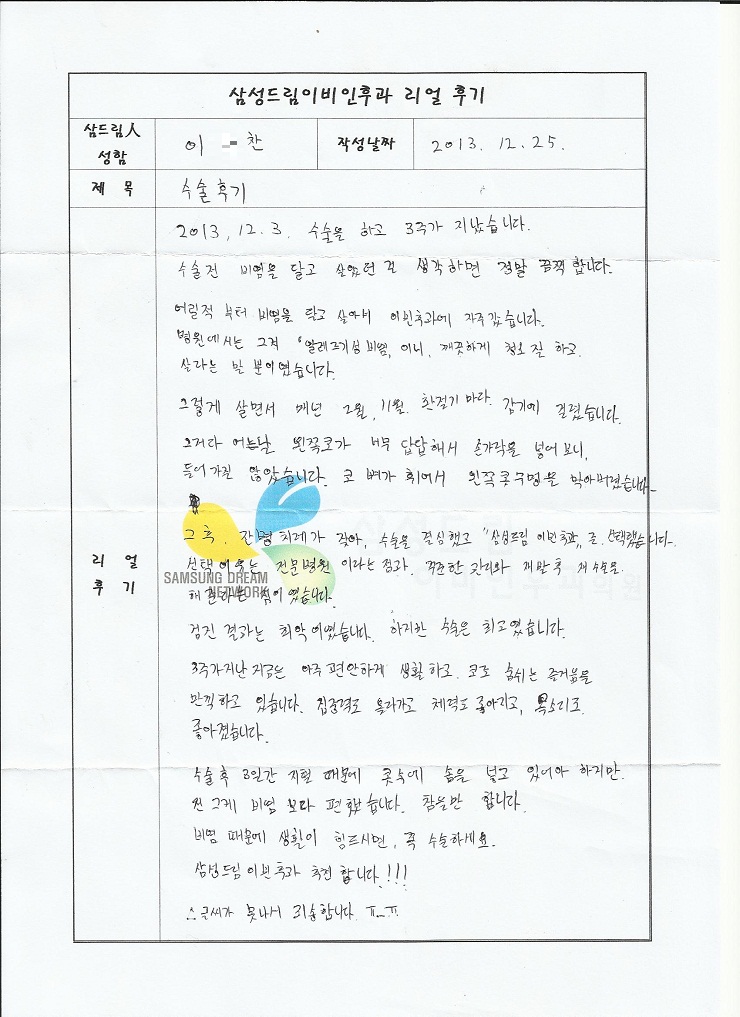 삼성드림이비인후과 리얼 후기
삼드림人 성함
이 찬
작성날짜
2013. 12. 25.
제 목
수술후기
리 얼
후 기
2013, 12. 3. 수술을 하고 3주가 지났습니다.
수술전 비염을 달고 살았던 걸 생각하면 정말 끔찍합니다.
어릴적 부터 비염을 달고 살아서 이빈후과에 자주갔습니다.
병원에서는 그저 '알레르기성 비염, 이니, 깨끗하게 청소 잘 하고
살라는 말 뿐이였습니다.
그렇게 살면서 매년 2월, 11월. 환절기 마다. 감기에 걸렸습니다.
그러다 어느날 왼쪽코가 너무 답답해서 손가락을 넣어 보니,
들어가질 않았습니다. 코 뼈가 휘어서 왼쪽콧구멍을 막아버렸습니다
그 후, 잔병 치레가 잦아, 수술을 결심했고 "삼성드림 이빈후과,, 를 선택했습니다.
선택이유는 전문병원 이라는 점과 꾸준한 관리와 재발 후 재수술로
해결하는 점이였습니다.
SAMSUNG DREAM
NETWORK
이비인후과의원
검진 결과는 최악이였습니다. 하지만 수술은 최고였습니다.
3주가지난 지금은 아주 편안하게 생활하고. 코로 숨쉬는 즐거움을
만끽하고 있습니다. 집중력도 올라가고 체력도 좋아지고, 목소리도
좋아졌습니다.
수술 후 3일간 지혈 때문에 콧속에 솜을 넣고 있어야 하지만.
전 그게 비염 보다 편했습니다. 참을만 합니다.
비염 때문에 생활이 힘드시면, 꼭 수술하세요.
삼성드림이빈후과 추천 합니다.!!!
글씨가 못나서 죄송합니다. ㅠ_ㅠ